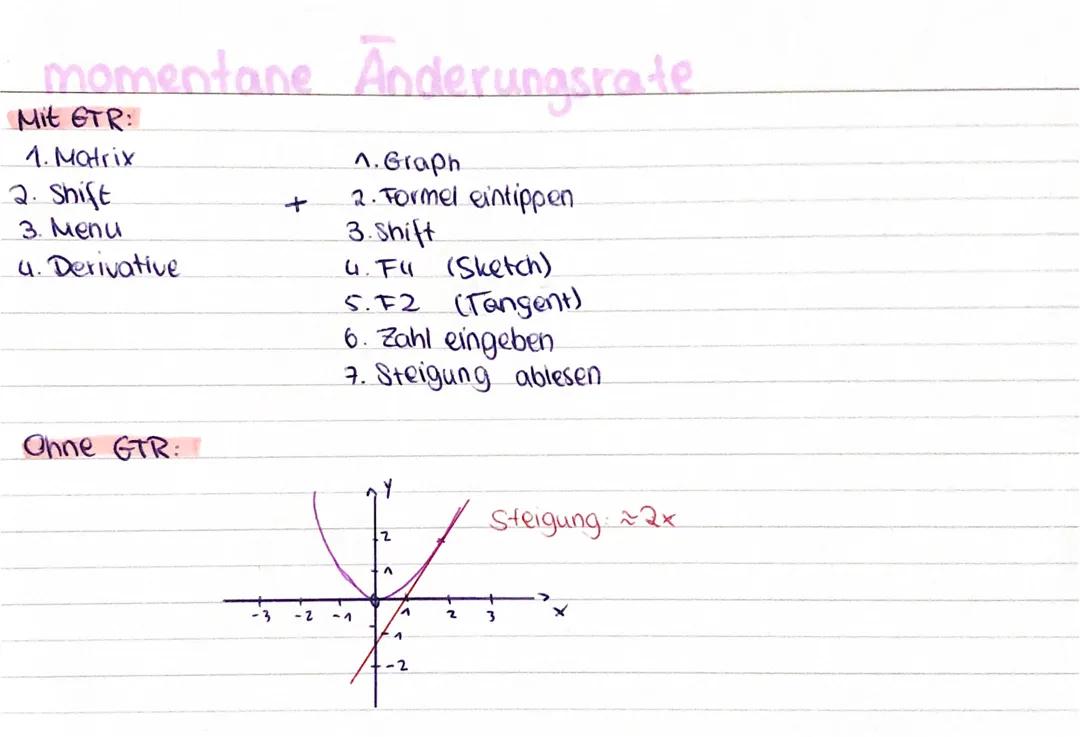 momentane Änderungsrate
Mit GTR:
1. Matrix
2. Shift
3. Menu
4. Derivative
+
1. Graph
2. Formel eintippen
3. Shift
4. F4 (Sketch)
5. F2 (Tangent)
6. Zahl eingeben
7. Steigung ablesen
Ohne GTR:
y
Steigung: ≈2x
2
1
-3 -2 -1 1 2 3 x
-1
-2